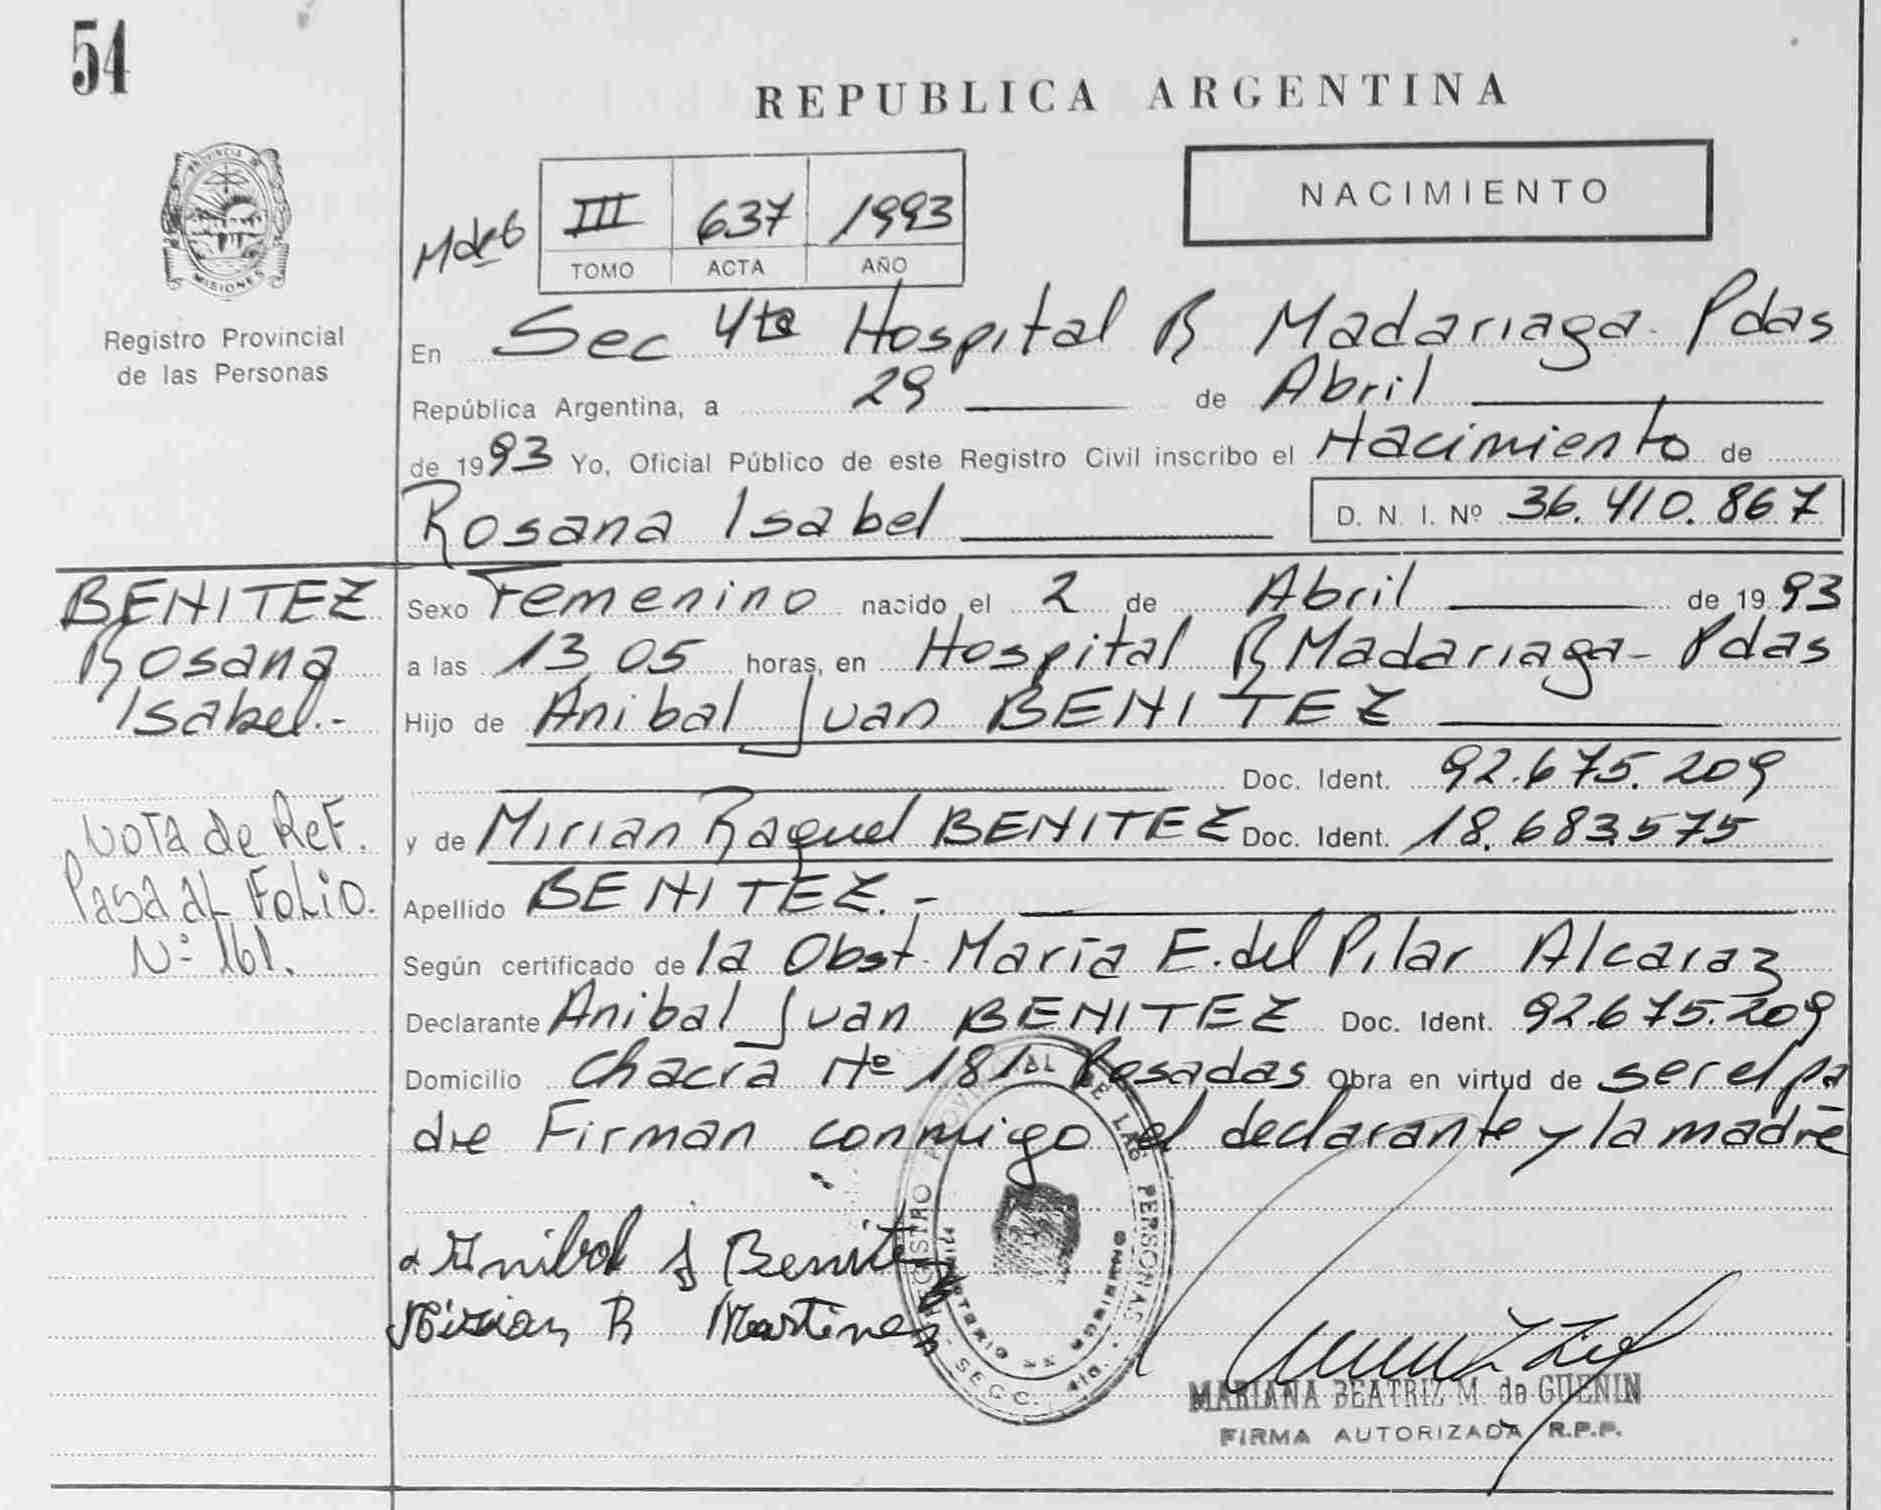 54
REPUBLICA ARGENTINA
PROVINCIA DE
MISIONES
Registro Provincial
de las Personas
NACIMIENTO
III 637 1993
TOMO ACTA AÑO
En Sec 4ta Hospital R Madariaga - Pdas
República Argentina, a 29 de Abril
de 1993 Yo, Oficial Público de este Registro Civil inscribo el Nacimiento de
Rosana Isabel D. N. I. Nº 36.410.867
BENITEZ
Rosana
Isabel.-
Sexo Femenino nacido el 2 de Abril de 1993
a las 13 05 horas, en Hospital R Madariaga - Pdas
Hijo de Anibal Juan BENITEZ
Doc. Ident. 92.675.209
y de Mirian Raquel BENITEZ Doc. Ident. 18.683575
Nota de Ref.
Pasa al Folio.
Nº 161.
Apellido BENITEZ.-
Según certificado de la Obst. María E. del Pilar Alcaraz
Declarante Anibal Juan BENITEZ Doc. Ident. 92.675.209
Domicilio Chacra Nº 181 Posadas Obra en virtud de ser el pa
dre Firman conmigo el declarante y la madre
Anibal J Benitez
Mirian R Martinez
REGISTRO PROVINCIAL DE LAS PERSONAS
MINISTERIO DE GOBIERNO
SECC. 4ta.
MARIANA BEATRIZ M. de GUENIN
FIRMA AUTORIZADA R.P.P.